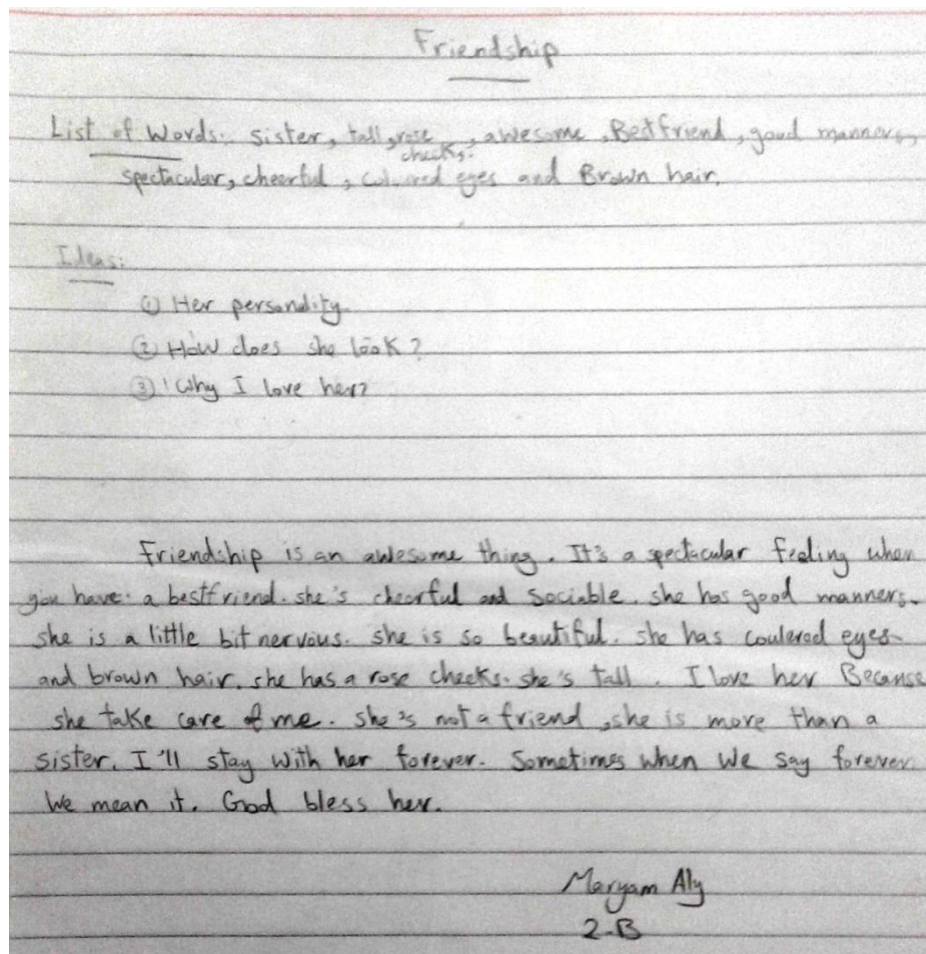 Friendship
List of Words: sister, tall, rose cheeks, awesome, Best friend, good manners,
spectacular, cheerful, coloured eyes and Brown hair.
Ideas:
① Her personality.
② How does she look?
③ Why I love her?
Friendship is an awesome thing. It's a spectacular feeling when
you have a bestfriend. she's cheerful and sociable. she has good manners.
she is a little bit nervous. she is so beautiful. she has coulered eyes
and brown hair. she has a rose cheeks. she's tall. I love her Because
she take care of me. she's not a friend, she is more than a
sister. I'll stay with her forever. Sometimes when we say forever
We mean it. God bless her.
Maryam Aly
2-B